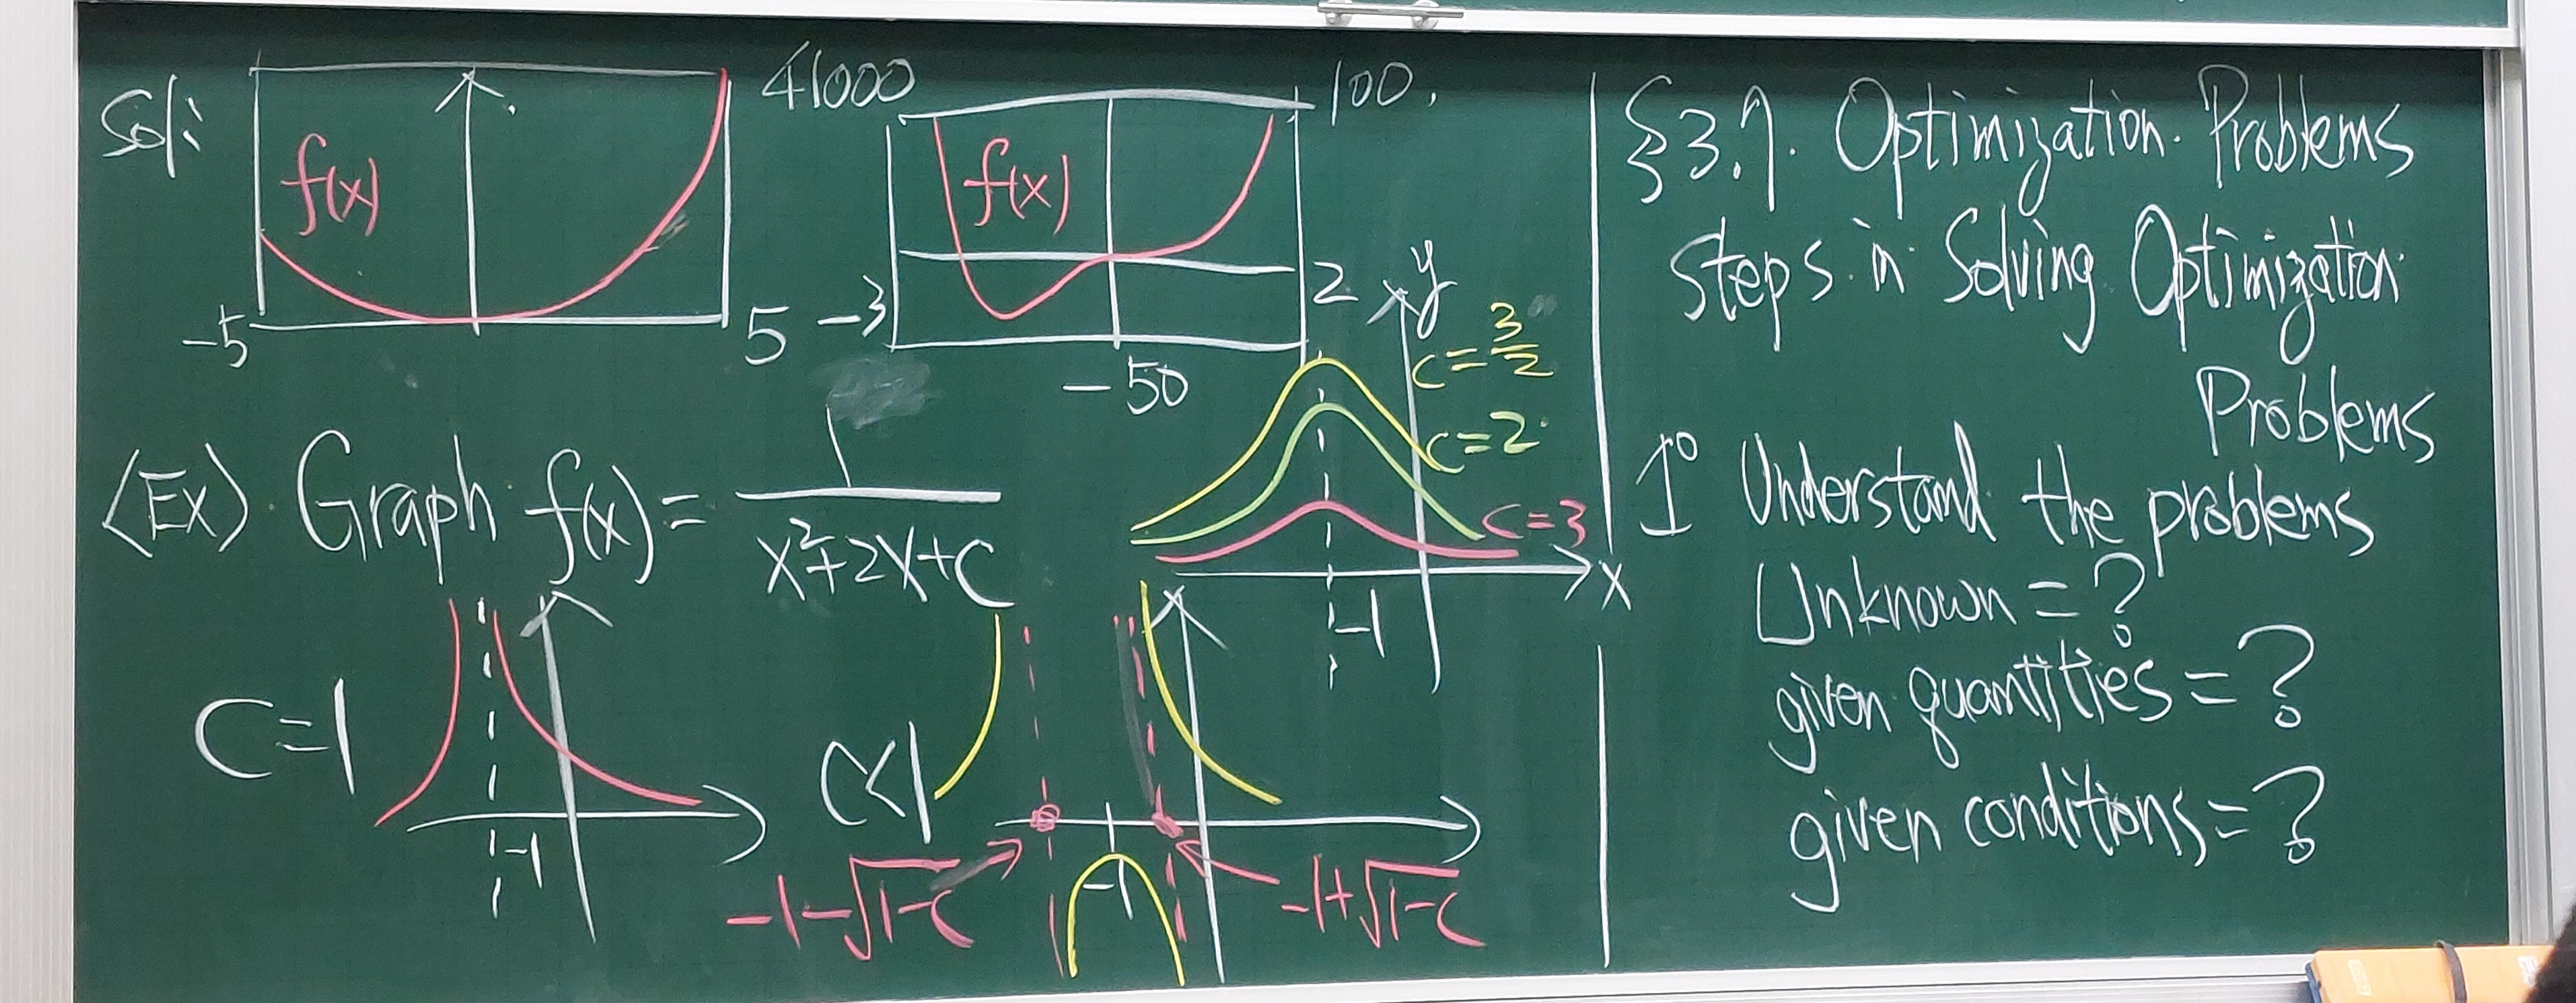 Sol:
f(x)
41000
-5
5
f(x)
100.
-3
2
-50
<Ex>. Graph f(x) = 1/(x²+2x+c)
y
c=3/2
c=2
c=3
x
-1
c=1
-1
c<1
-1-√1-c
-1
-1+√1-c
§3.7. Optimization Problems
steps in Solving Optimization
Problems
1° Understand the problems
Unknown = ?
given quantities = ?
given conditions = ?